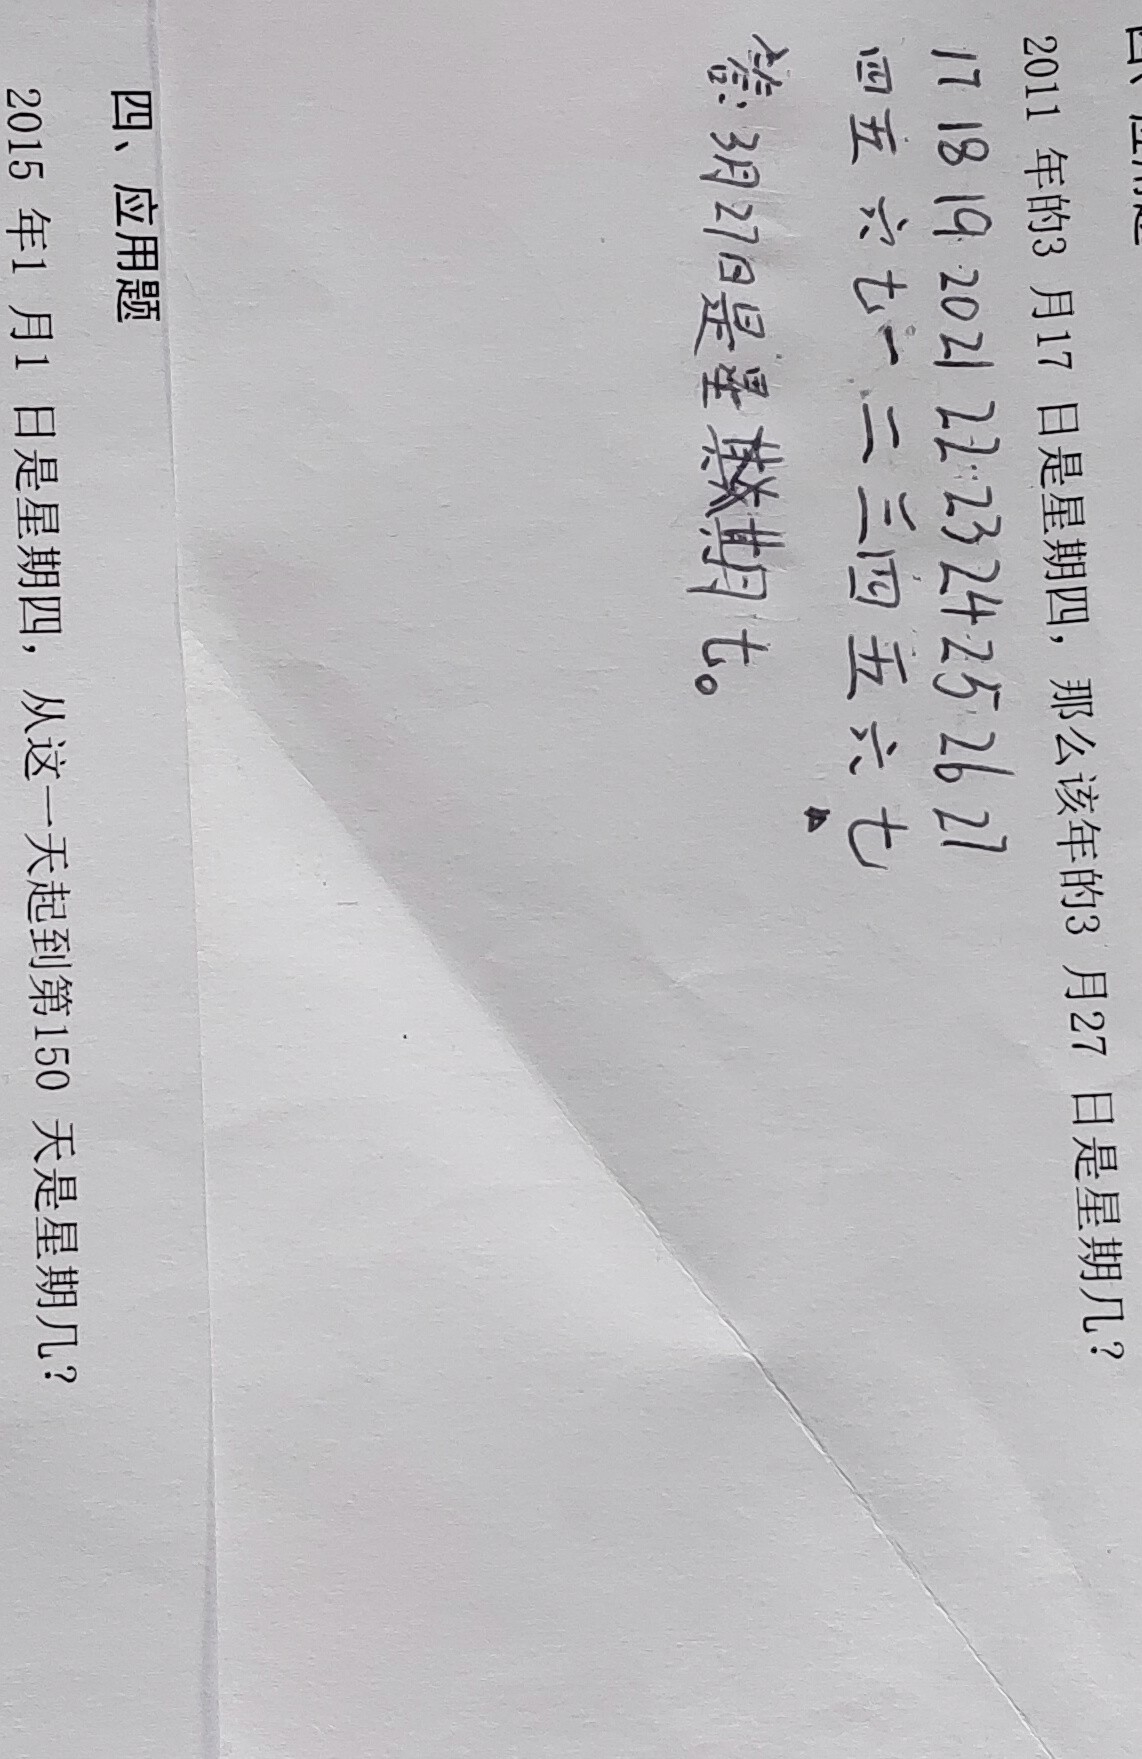 2011 年的3 月17 日是星期四，那么该年的3 月27 日是星期几？
17 18 19 20 21 22 23 24 25 26 27
四 五 六 七 一 二 三 四 五 六 七
答：3月27日是星期七。
四、应用题
2015 年1 月1 日是星期四，从这一天起到第150 天是星期几？